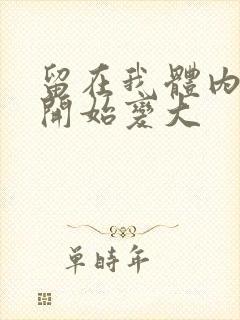 留在我體內
開始變大
單時年